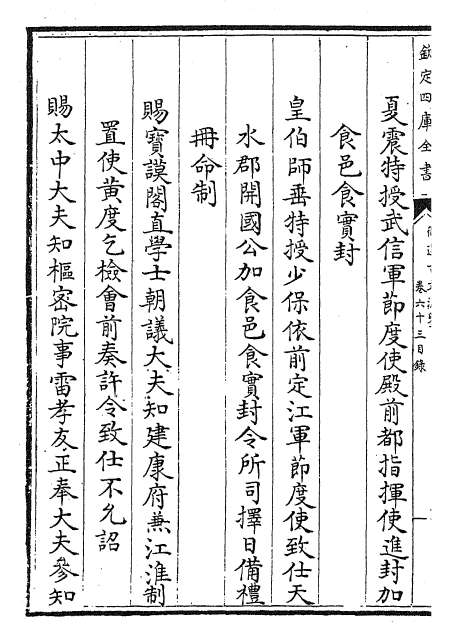 欽定四庫全書
卷六十三目錄
夏震特授武信軍節度使殿前都指揮使進封加
食邑食實封
皇伯師垂特授少保依前定江軍節度使致仕天
水郡開國公加食邑食實封令所司擇日備禮
冊命制
賜寶謨閣直學士朝議大夫知建康府兼江淮制
置使黃度乞檢會前奏許令致仕不允詔
賜太中大夫知樞密院事雷孝友正奉大夫參知